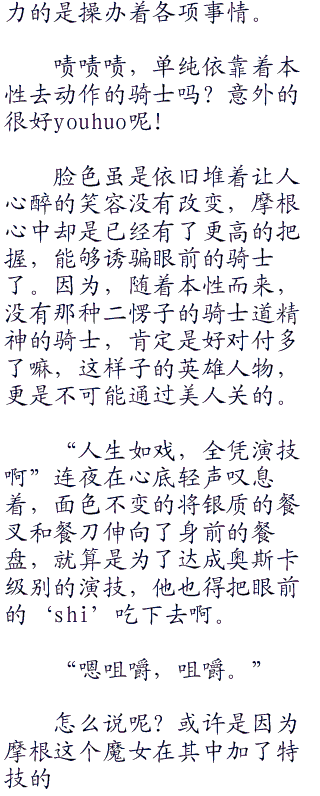 力的是操办着各项事情。
啧啧啧，单纯依靠着本
性去动作的骑士吗？意外的
很好youhuo呢！
脸色虽是依旧堆着让人
心醉的笑容没有改变，摩根
心中却是已经有了更高的把
握，能够诱骗眼前的骑士
了。因为，随着本性而来，
没有那种二愣子的骑士道精
神的骑士，肯定是好对付多
了嘛，这样子的英雄人物，
更是不可能通过美人关的。
“人生如戏，全凭演技
啊”连夜在心底轻声叹息
着，面色不变的将银质的餐
叉和餐刀伸向了身前的餐
盘，就算是为了达成奥斯卡
级别的演技，他也得把眼前
的‘shi’吃下去啊。
“嗯咀嚼，咀嚼。”
怎么说呢？或许是因为
摩根这个魔女在其中加了特
技的